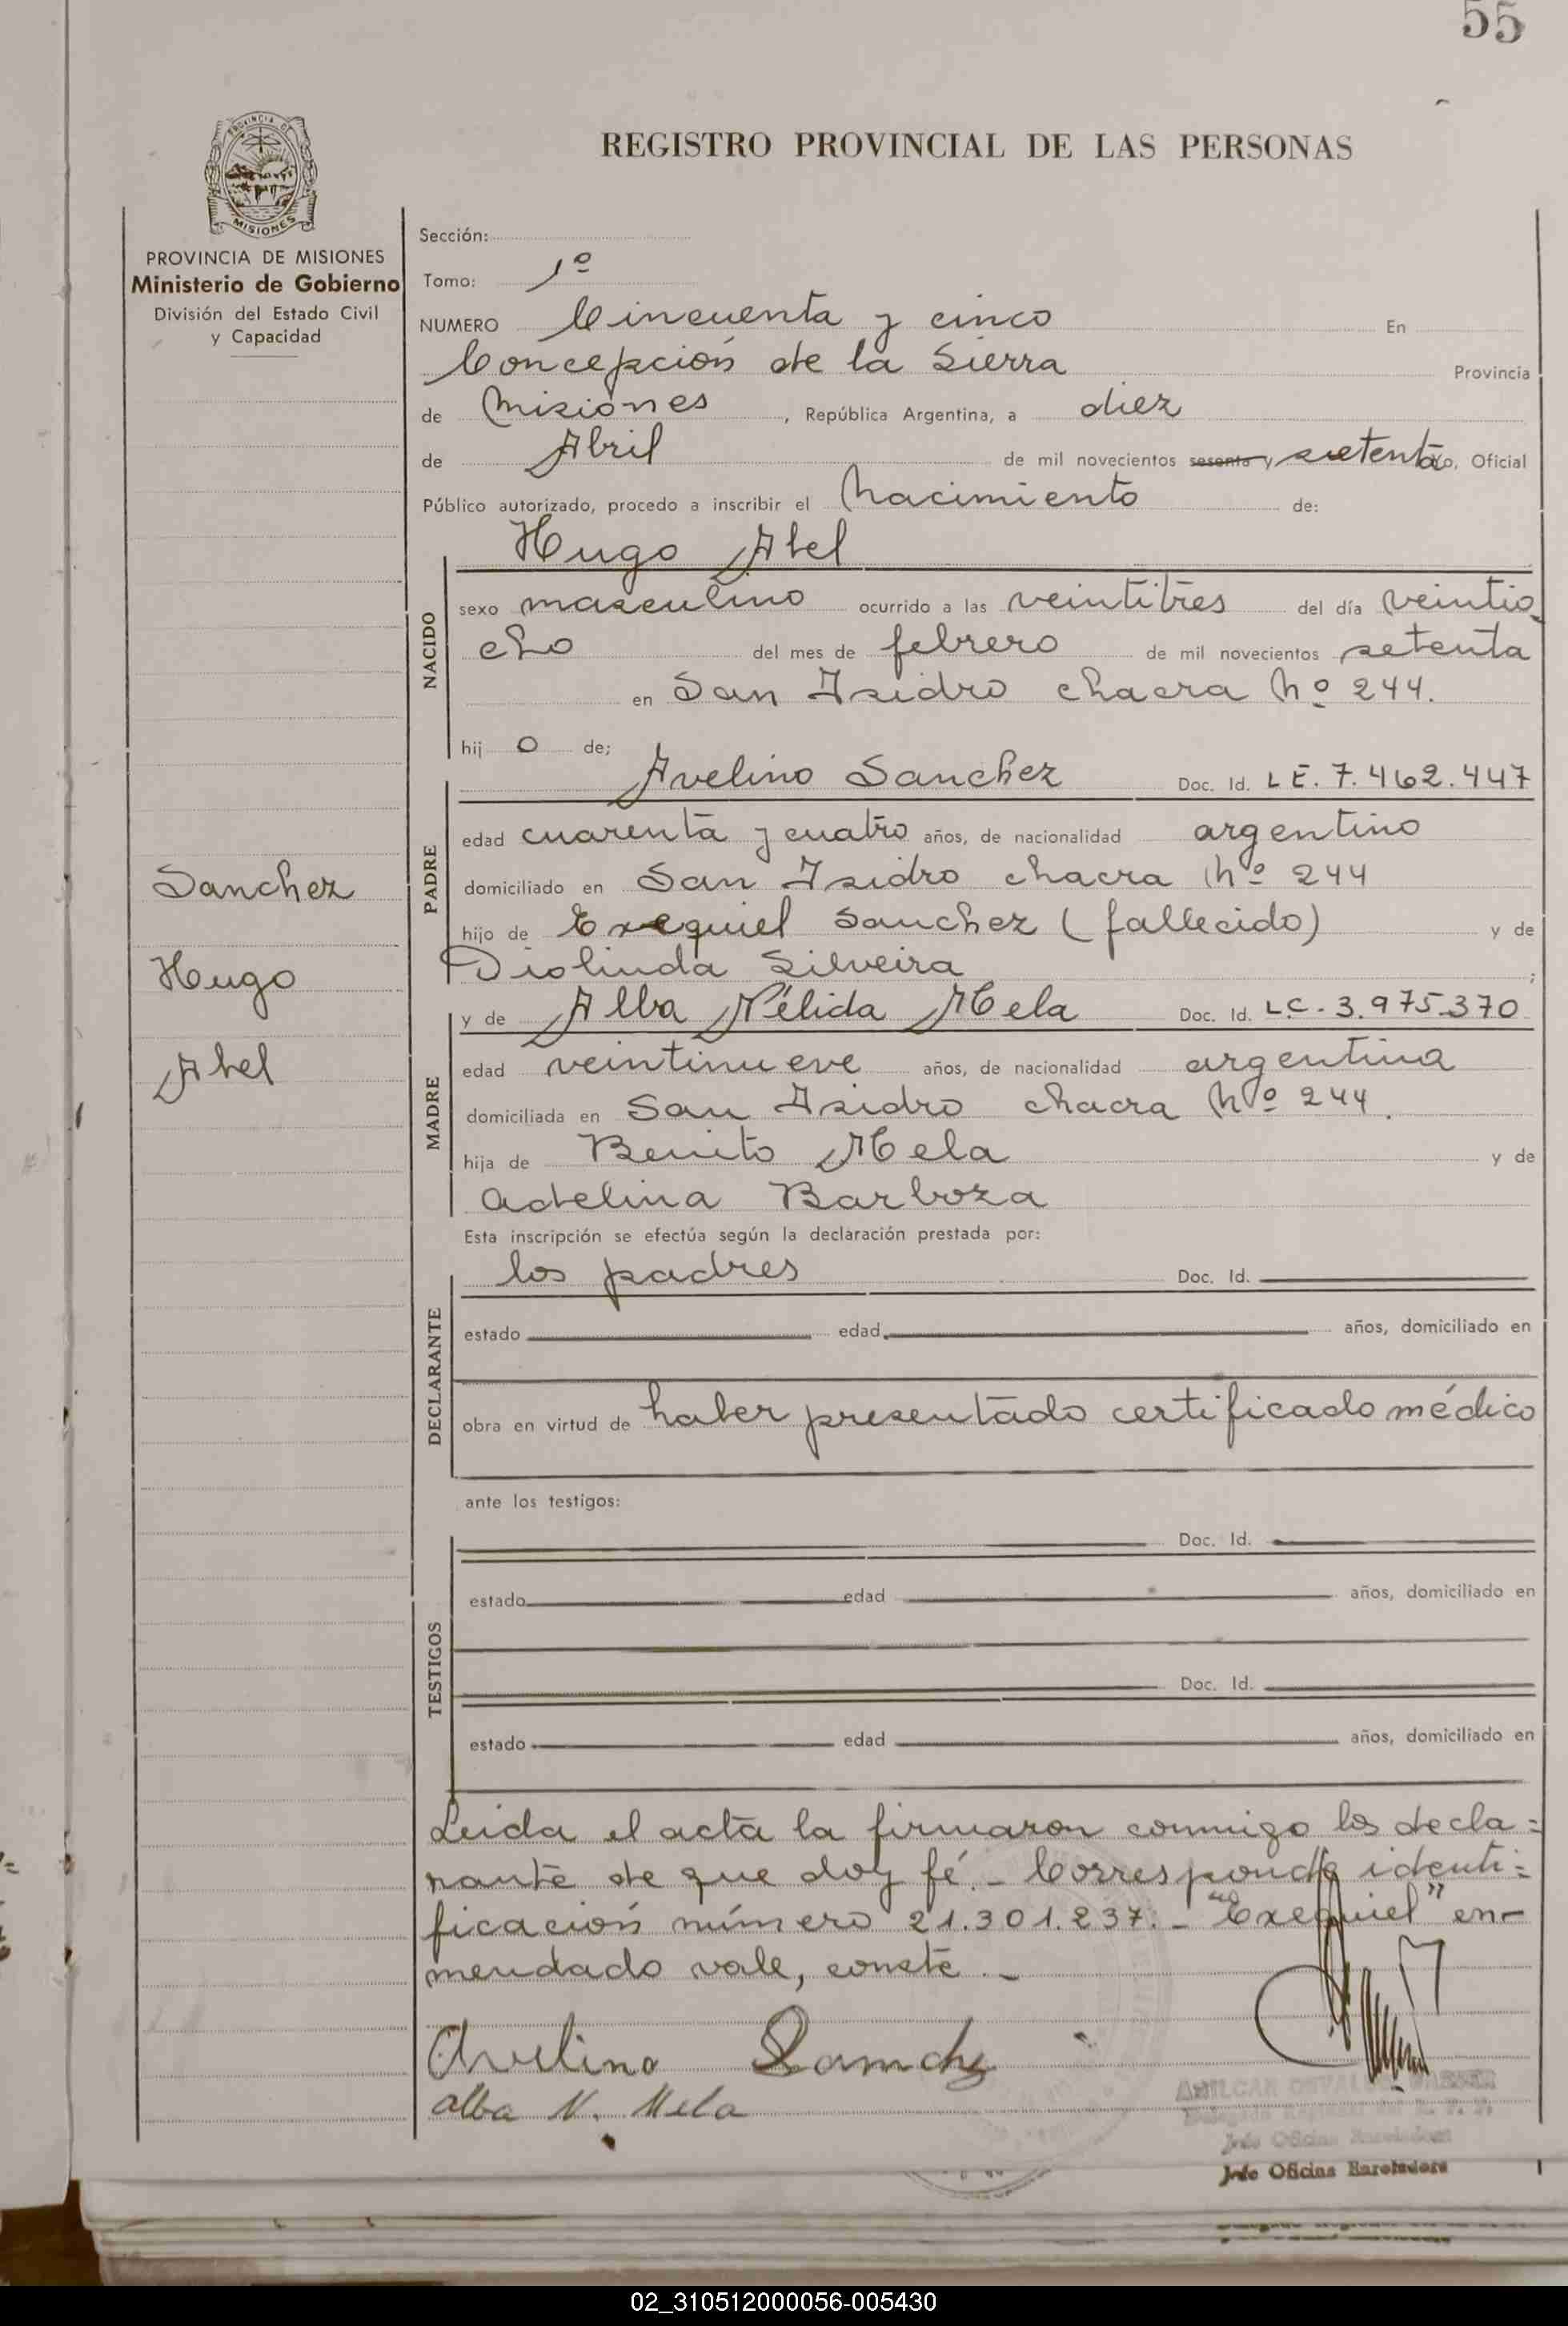 55
REGISTRO PROVINCIAL DE LAS PERSONAS
PROVINCIA DE
MISIONES
PROVINCIA DE MISIONES
Ministerio de Gobierno
División del Estado Civil
y Capacidad
Sección:
Tomo: 1º
NUMERO Cincuenta y cinco En
Concepción de la Sierra Provincia
de Misiones, República Argentina, a diez
de Abril de mil novecientos sesenta y setenta yo, Oficial
Público autorizado, procedo a inscribir el Nacimiento de:
Hugo Abel
NACIDO
sexo masculino ocurrido a las veintitres del día veintio
cho del mes de febrero de mil novecientos setenta
en San Isidro chacra Nº 244.
hij o de;
Avelino Sanchez Doc. Id. LE. 7.462.447
PADRE
edad cuarenta y cuatro años, de nacionalidad argentino
domiciliado en San Isidro chacra Nº 244
hijo de Exequiel Sanchez (fallecido) y de
Diolinda Silveira ;
y de Alba Nélida Mela Doc. Id. L.C. 3.975.370
MADRE
edad veintinueve años, de nacionalidad argentina
domiciliada en San Isidro chacra Nº 244.
hija de Benito Mela y de
Adelina Barboza
Sanchez
Hugo
Abel
Esta inscripción se efectúa según la declaración prestada por:
los padres Doc. Id.
DECLARANTE
estado edad años, domiciliado en
obra en virtud de haber presentado certificado médico
ante los testigos:
Doc. Id.
TESTIGOS
estado edad años, domiciliado en
Doc. Id.
estado edad años, domiciliado en
Leida el acta la firmaron conmigo los decla=
rante de que doy fé.- Corresponde identi=
ficación número 21.301.237.- "Exequiel" en-
mendado vale, conste.-
Avelino Sanchz
Alba N. Mela
Jefe Oficina
Jefe Oficina
02_310512000056-005430